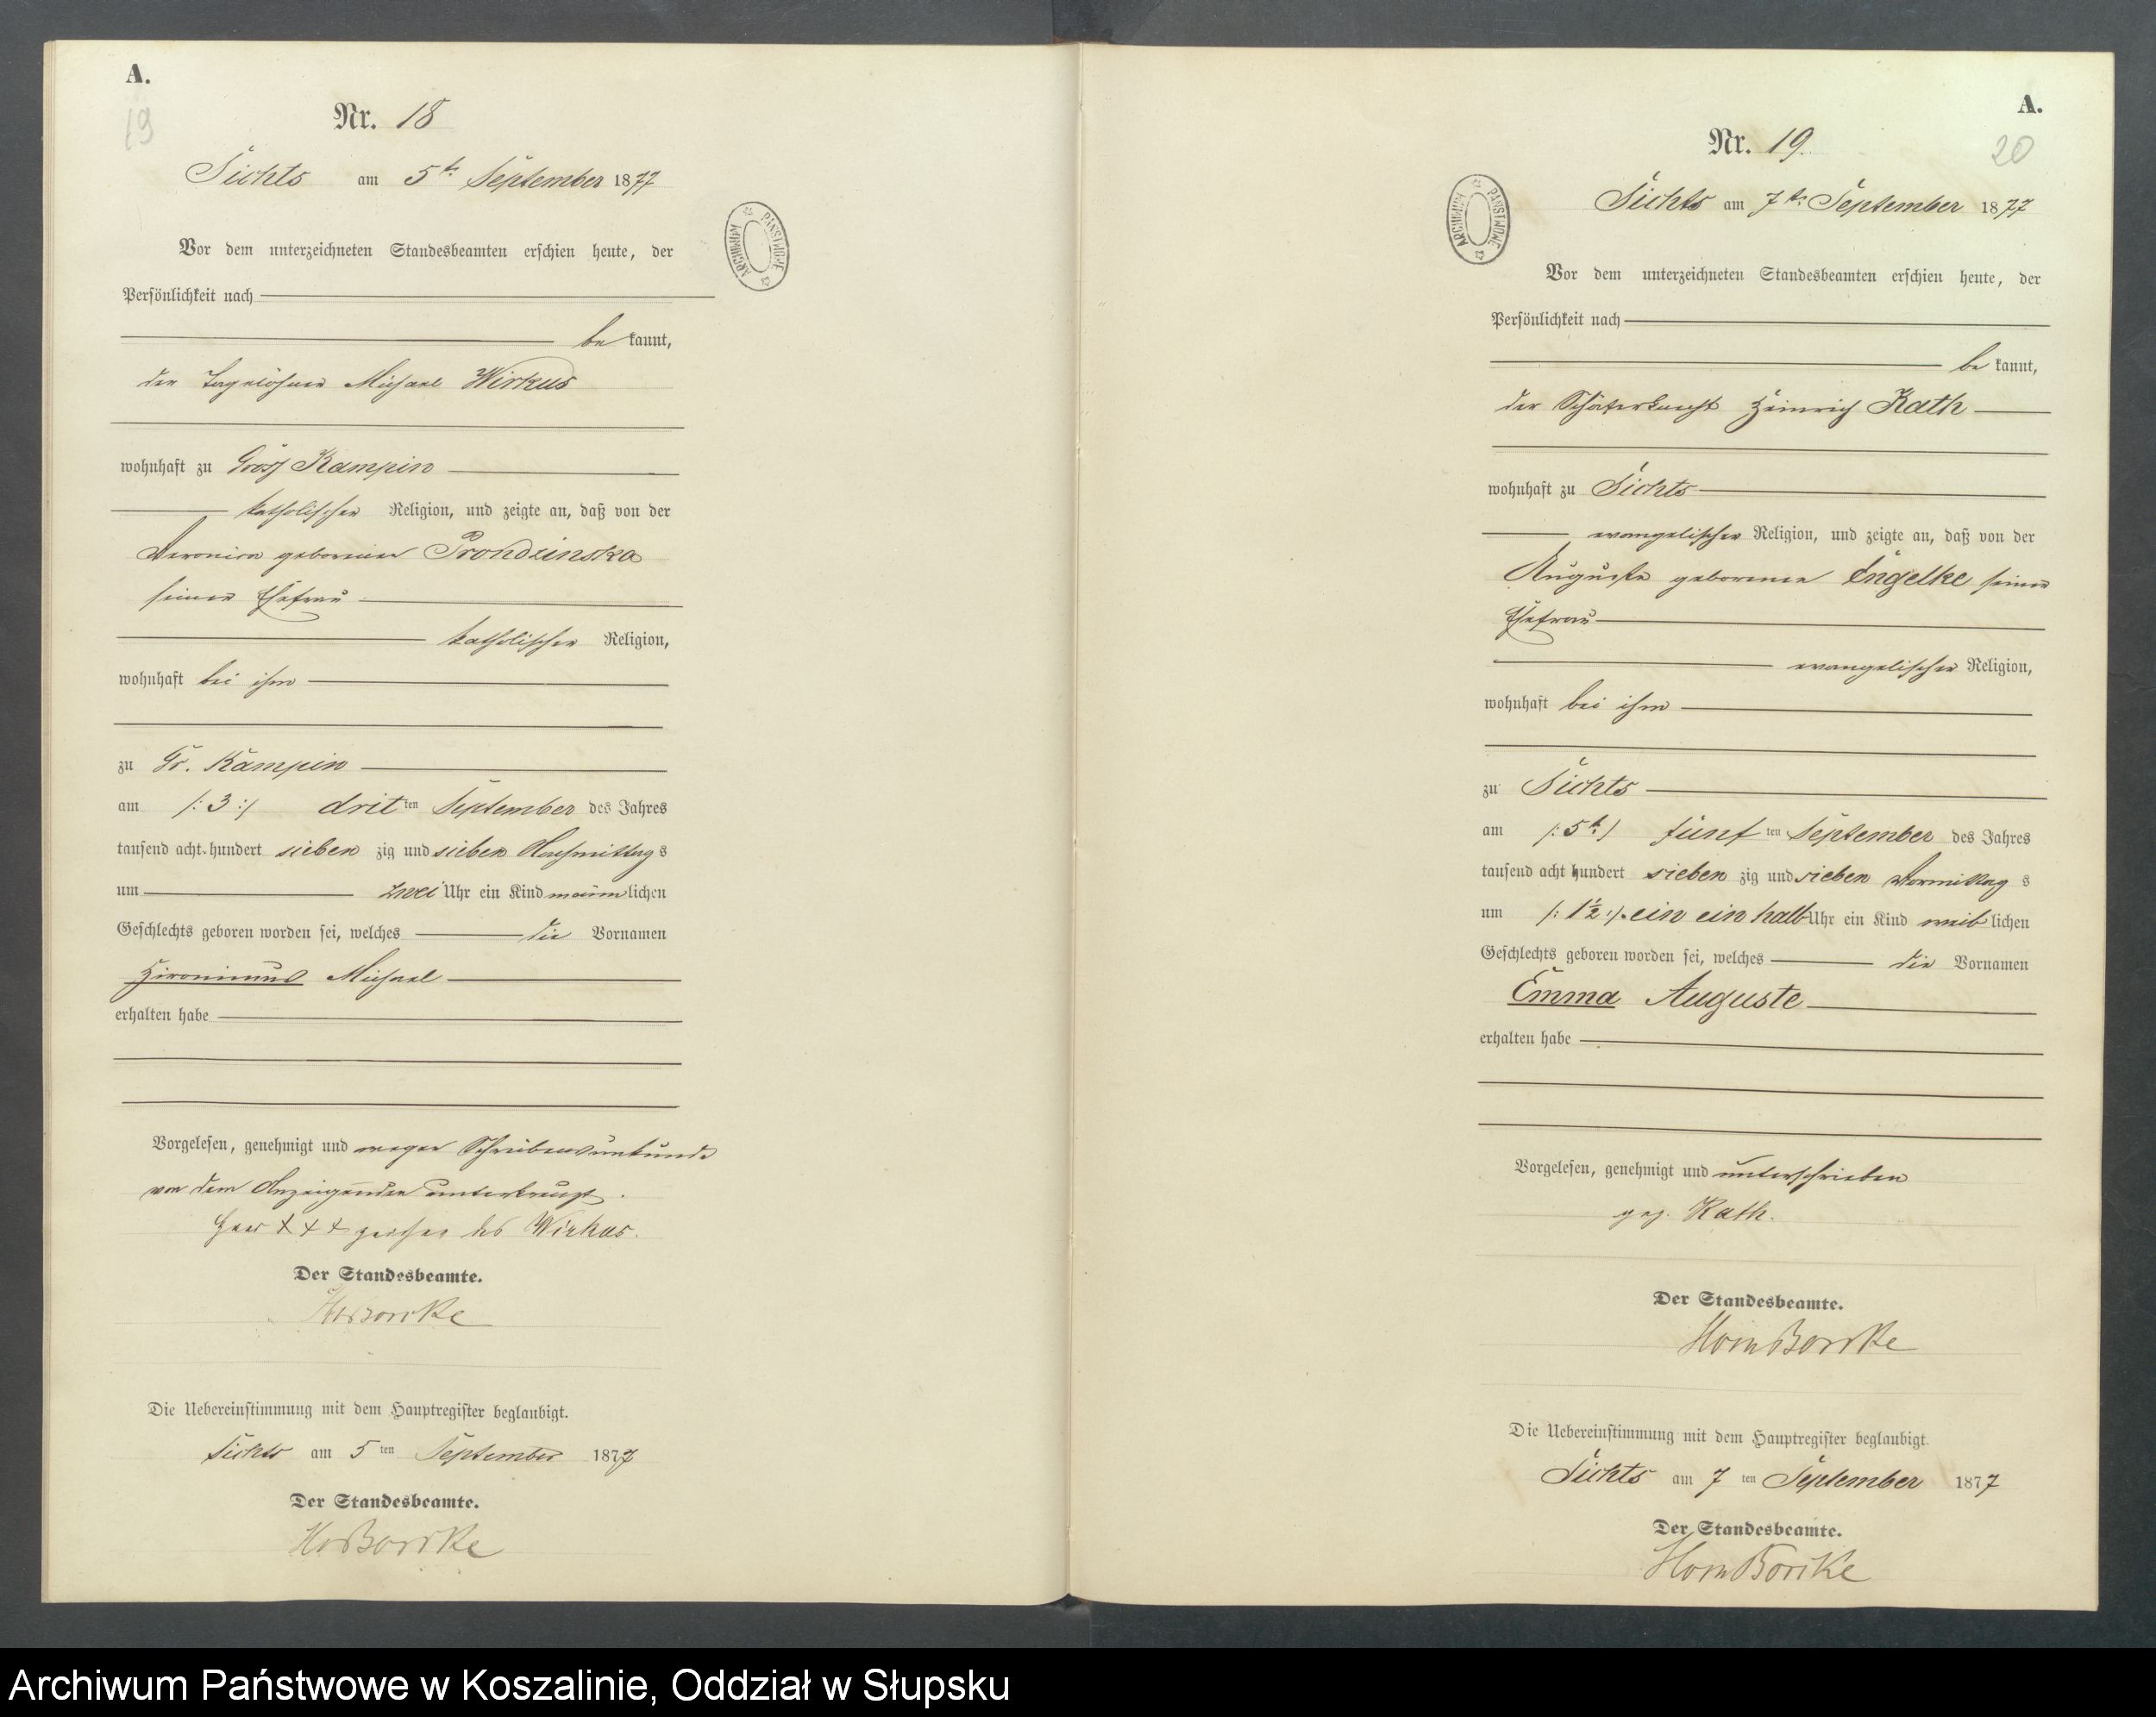 A.
19
Nr. 18
Sichts am 5ten September 1877
ARCHIWUM PAŃSTWOWE
Vor dem unterzeichneten Standesbeamten erschien heute, der
Persönlichkeit nach
be kannt,
der Tagelöhner Michael Wirkus
wohnhaft zu Gross Kampin
katholischer Religion, und zeigte an, daß von der
Veronica geborenen Prondzinska
seiner Ehefrau
katholischer Religion,
wohnhaft bei ihm
zu Gr. Kampin
am /: 3 :/ drit ten September des Jahres
tausend acht hundert sieben zig und sieben Nachmittag s
um zwei Uhr ein Kind männ lichen
Geschlechts geboren worden sei, welches die Vornamen
Hironimus Michael
erhalten habe
Vorgelesen, genehmigt und wegen Schreibensunkunde
von dem Anzeigenden unterkreuzt.
Handzeichen des Wirkus.
Der Standesbeamte.
Die Uebereinstimmung mit dem Hauptregister beglaubigt.
Sichts am 5 ten September 1877
Der Standesbeamte.
A.
20
Nr. 19.
Sichts am 7ten September 1877
ARCHIWUM PAŃSTWOWE
Vor dem unterzeichneten Standesbeamten erschien heute, der
Persönlichkeit nach
be kannt,
der Schäferknecht Heinrich Kath
wohnhaft zu Sichts
evangelischer Religion, und zeigte an, daß von der
Auguste geborenen Engelke seiner
Ehefrau
evangelischer Religion,
wohnhaft bei ihm
zu Sichts
am /: 5t :/ fünf ten September des Jahres
tausend acht hundert sieben zig und sieben Vormittag s
um /: 1½ :/ ein ein halb Uhr ein Kind weib lichen
Geschlechts geboren worden sei, welches die Vornamen
Emma Auguste
erhalten habe
Vorgelesen, genehmigt und unterschrieben
gez. Kath.
Der Standesbeamte.
Die Uebereinstimmung mit dem Hauptregister beglaubigt.
Sichts am 7 ten September 1877
Der Standesbeamte.
Archiwum Państwowe w Koszalinie, Oddział w Słupsku